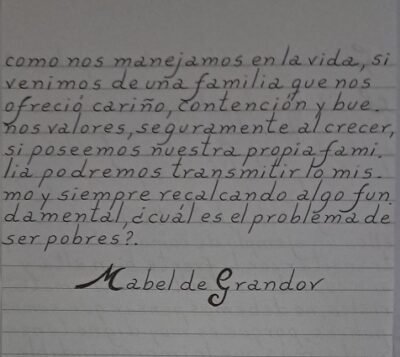 como nos manejamos en la vida, si
venimos de una familia que nos
ofreció cariño, contención y bue-
nos valores, seguramente al crecer,
si poseemos nuestra propia fami-
lia podremos transmitir lo mis-
mo y siempre recalcando algo fun-
damental, ¿cuál es el problema de
ser pobres?.
Mabel de Grandov